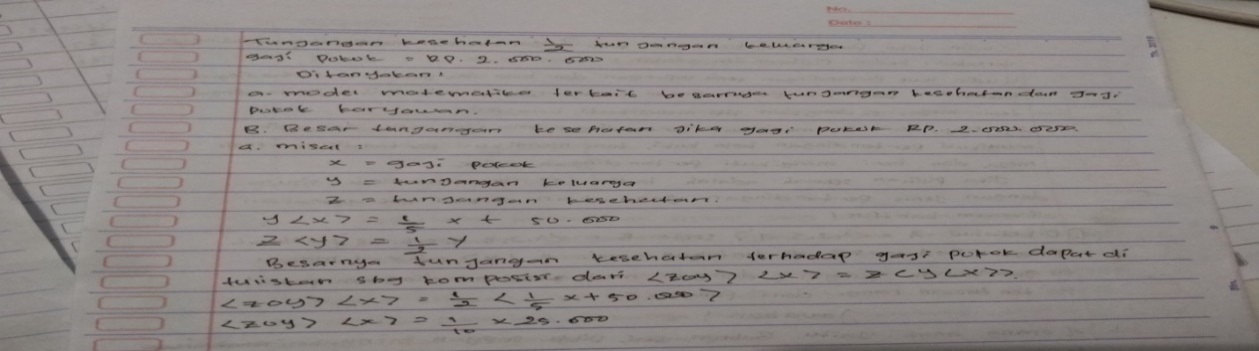 No.
Date :
Tunjangan kesehatan 1/2 tunjangan keluarga
gaji pokok = RP. 2.000.000
Ditanyakan :
a. model matematika terkait besarnya tunjangan kesehatan dan gaji
pokok karyawan.
B. Besar tunjangan kesehatan jika gaji pokok RP. 2.000.000
a. misal :
x = gaji pokok
y = tunjangan keluarga
z = tunjangan kesehatan.
y <x> = 1/5 x + 50.000
z <y> = 1/2 y
Besarnya tunjangan kesehatan terhadap gaji pokok dapat di
tuliskan sbg komposisi dari <zoy> <x> = z <y <x>>.
<zoy> <x> = 1/2 < 1/5 x + 50.000 >
<zoy> <x> = 1/10 x 25.000